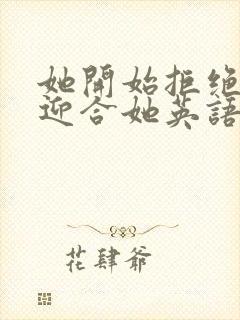 她開始拒绝
迎合她英語
花肆爺